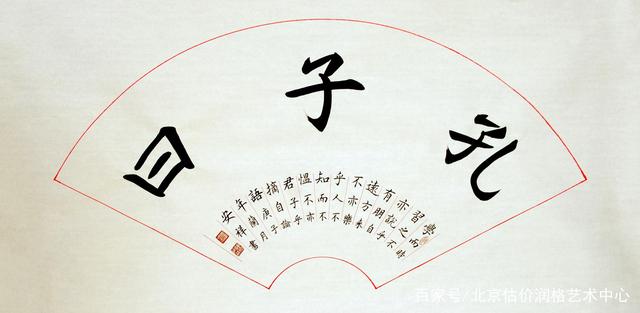 孔子曰
學而時
習之不
亦說乎
有朋自
遠方来
不亦樂
乎人不
知而不
愠不亦
君子乎
摘自論
語庚子
年蘭月
安祥書
百家号/北京估价润格艺术中心